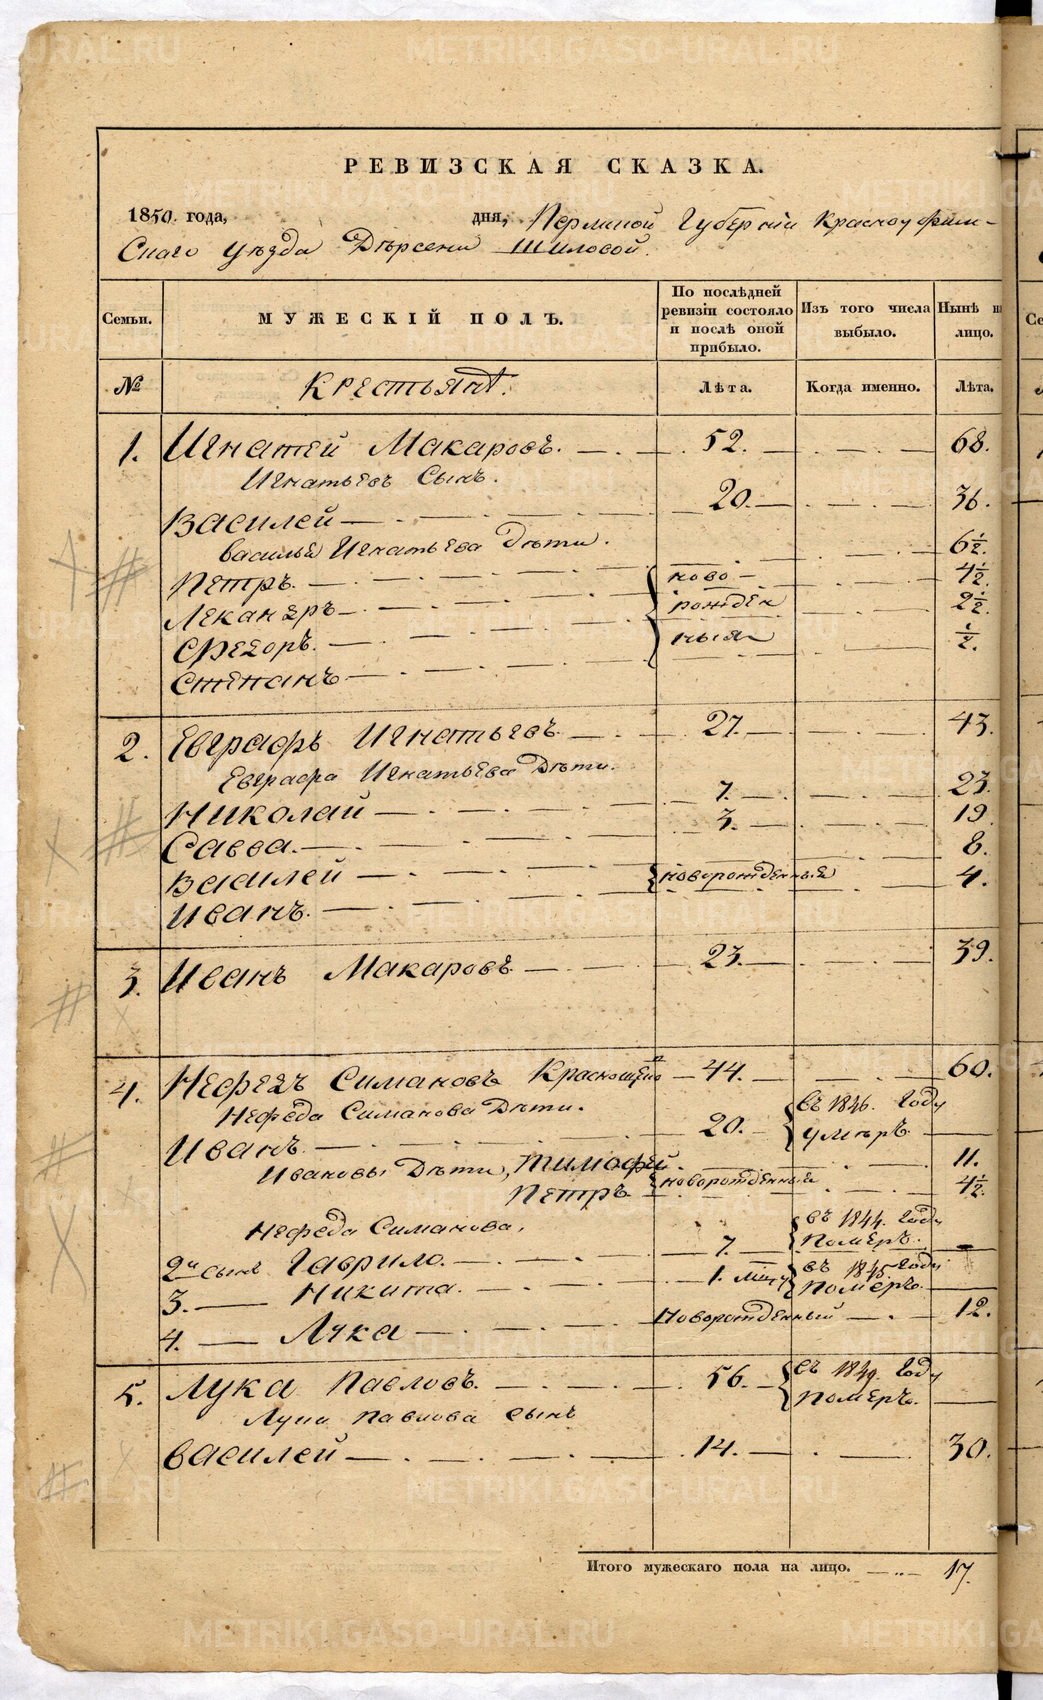 РЕВИЗСКАЯ СКАЗКА.
1850. года, дня, Пермской Губерніи Красноуфим-
Скаго уѣзда Дѣревни Шиловой.
Семьи. МУЖЕСКІЙ ПОЛЪ. По послѣдней ревизіи состояло и послѣ оной прибыло. Изъ того числа выбыло. Нынѣ на лицо.
№ Крестьянъ. Лѣта. Когда именно. Лѣта.
1. Игнатей Макаровъ. 52. 68.
Игнатьевъ Сынъ.
Василей 20. 36.
василья Игнатьева Дѣти.
Петръ. ново- 6½.
Лекандръ рожден 4½.
Федоръ. ныя 2½.
Степанъ ½.
2. Евграфъ Игнатьевъ 27. 43.
Евграфа Игнатьева Дѣти.
Николай 7. 23.
Савва. 3. 19
Василей новорожденныя 8.
Иванъ. 4.
3. Иванъ Макаровъ 23. 39.
4. Нефедъ Симановъ 44. 60.
Нефеда Симанова Дѣти.
Иванъ. 20. въ 1846. Году умѣръ
Ивановы Дѣти, Тимофей. новорожденныя 11.
Петръ 4½.
Нефеда Симанова,
2й сынъ Гаврило. 7. въ 1844. Году Помѣръ.
3. Никита. 1. мѣц въ 1845 Году Помѣръ.
4. Лука Новорожденный 12.
5. Лука Павловъ. 56. въ 1849. Году Помѣръ.
Луки Павлова сынъ
василей 14. 30.
Итого мужескаго пола на лицо. 17.
METRIKI.GASO-URAL.RU